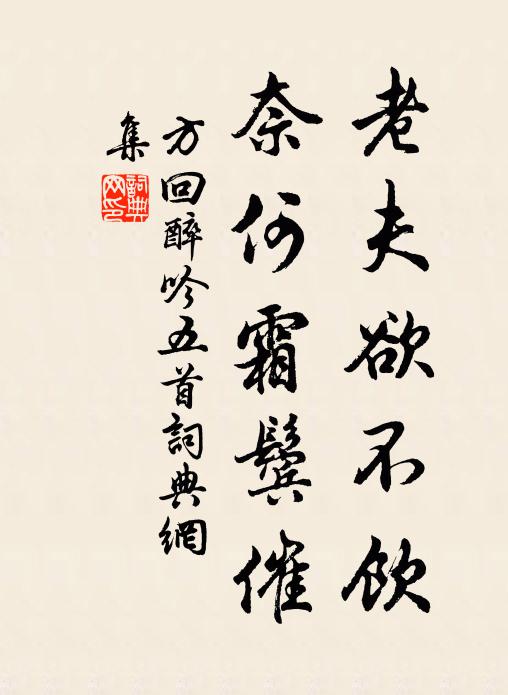 老夫欲不飲
奈何霜鬢催
方回醉吟五首詞典網
集
詞典
网印